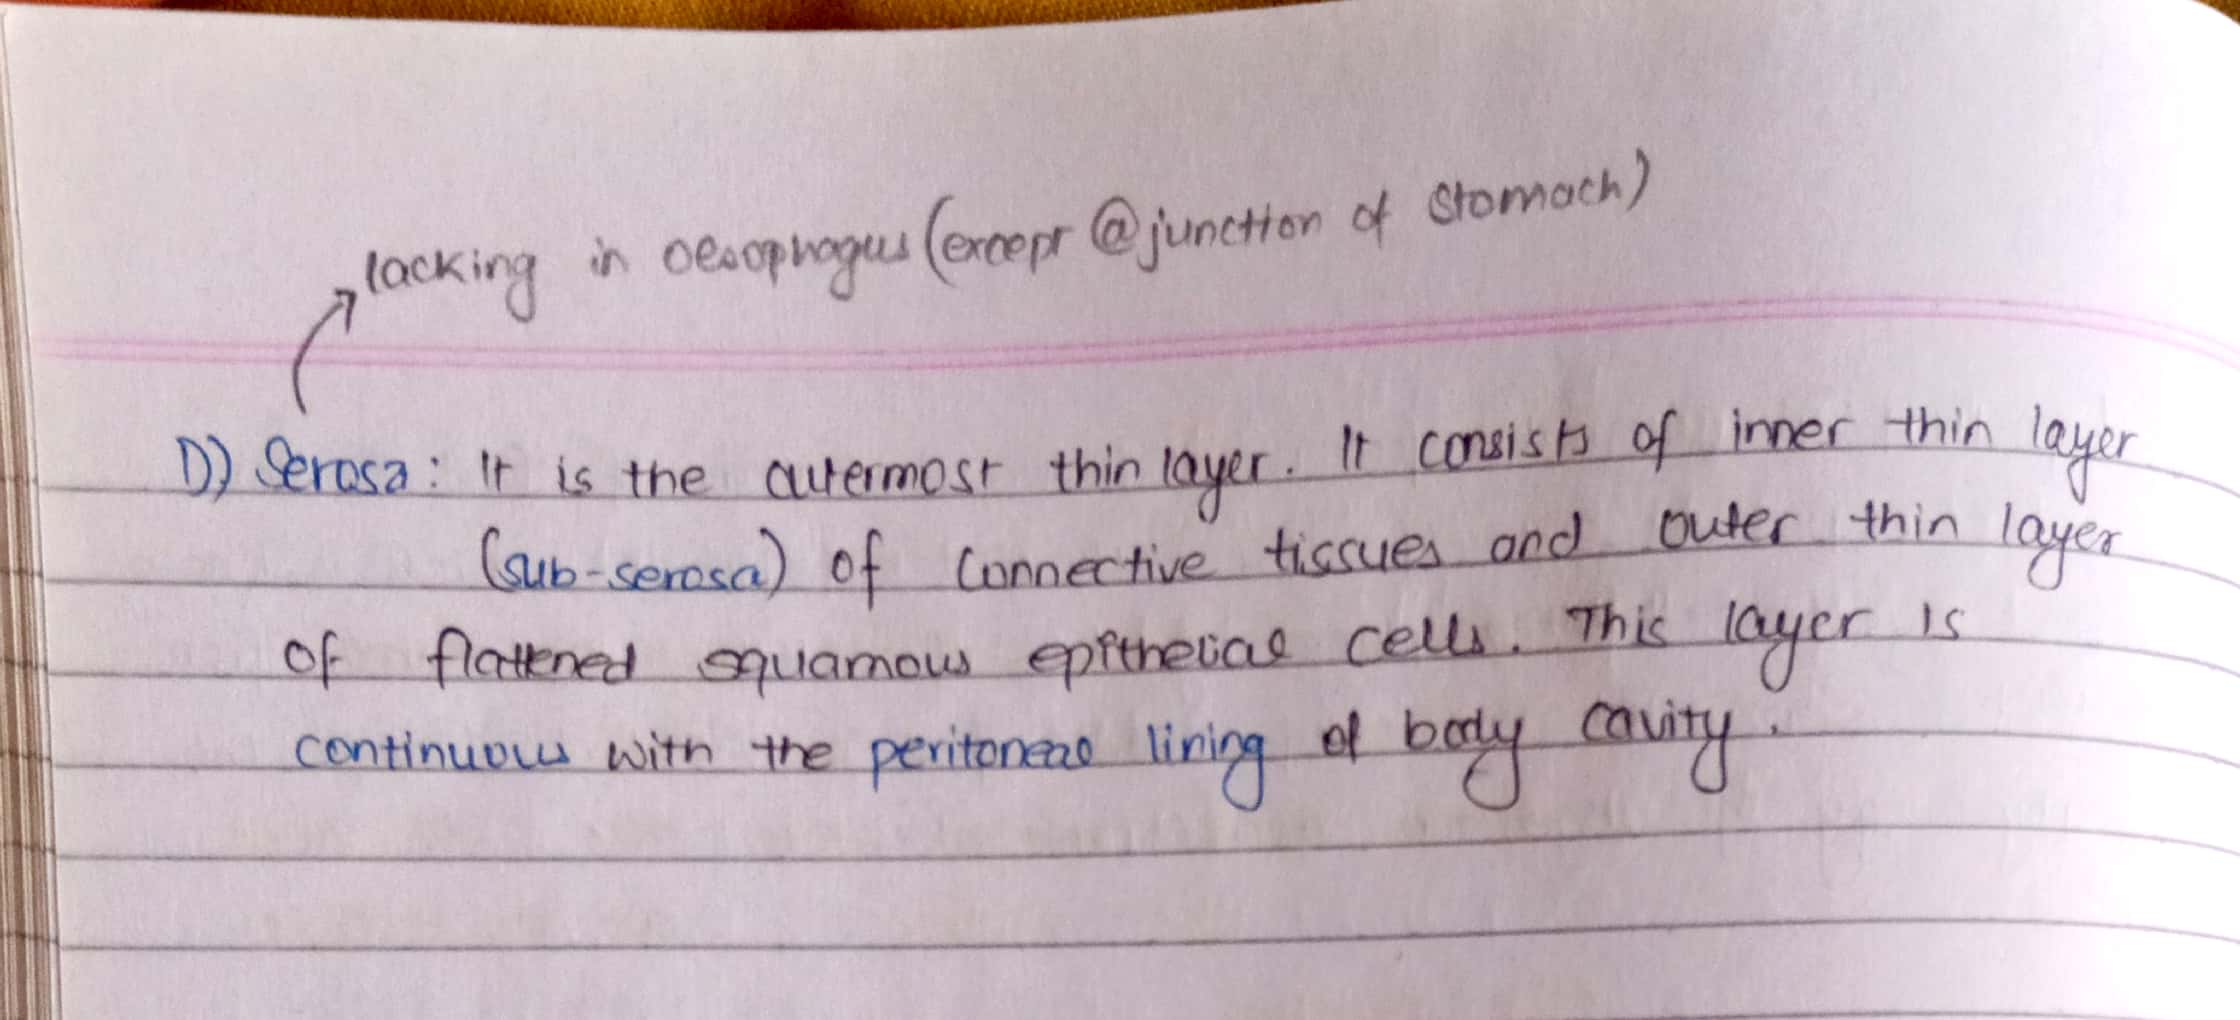 lacking in oesophagus (except @ junction of stomach)
D) Serosa: It is the outermost thin layer. It consists of inner thin layer
(sub-serosa) of connective tissues and outer thin layer
of flattened squamous epithelial cells. This layer is
continuous with the peritoneal lining of body cavity.